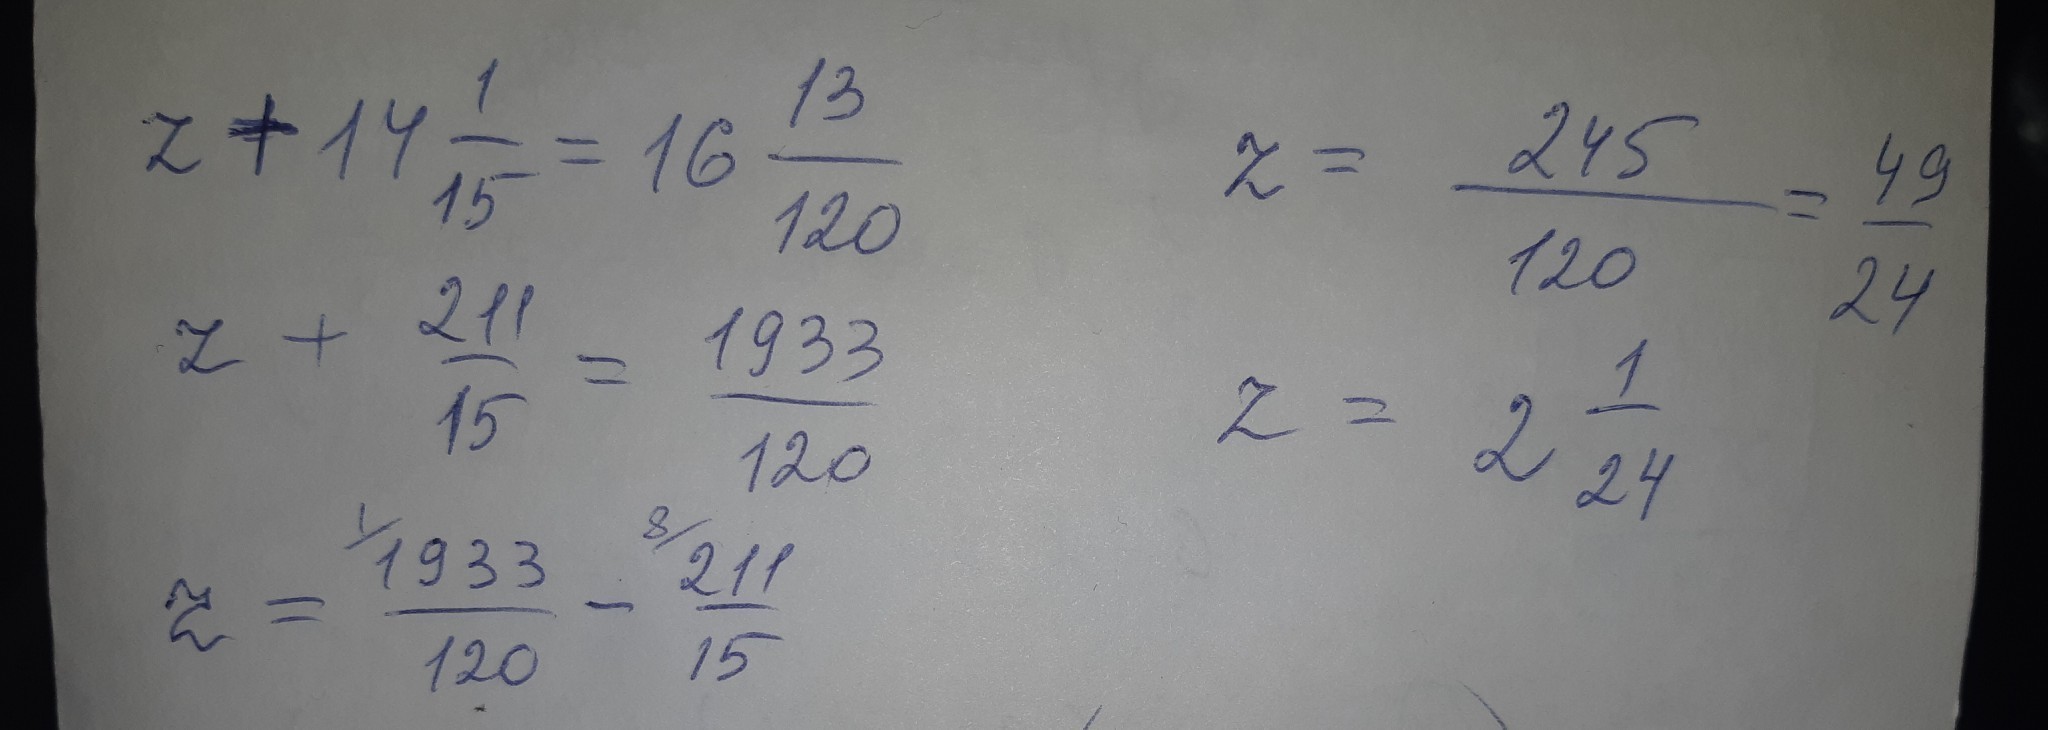 z + 14 1/15 = 16 13/120
z + 211/15 = 1933/120
z = 1/ 1933/120 - 8/ 211/15
z = 245/120 = 49/24
z = 2 1/24